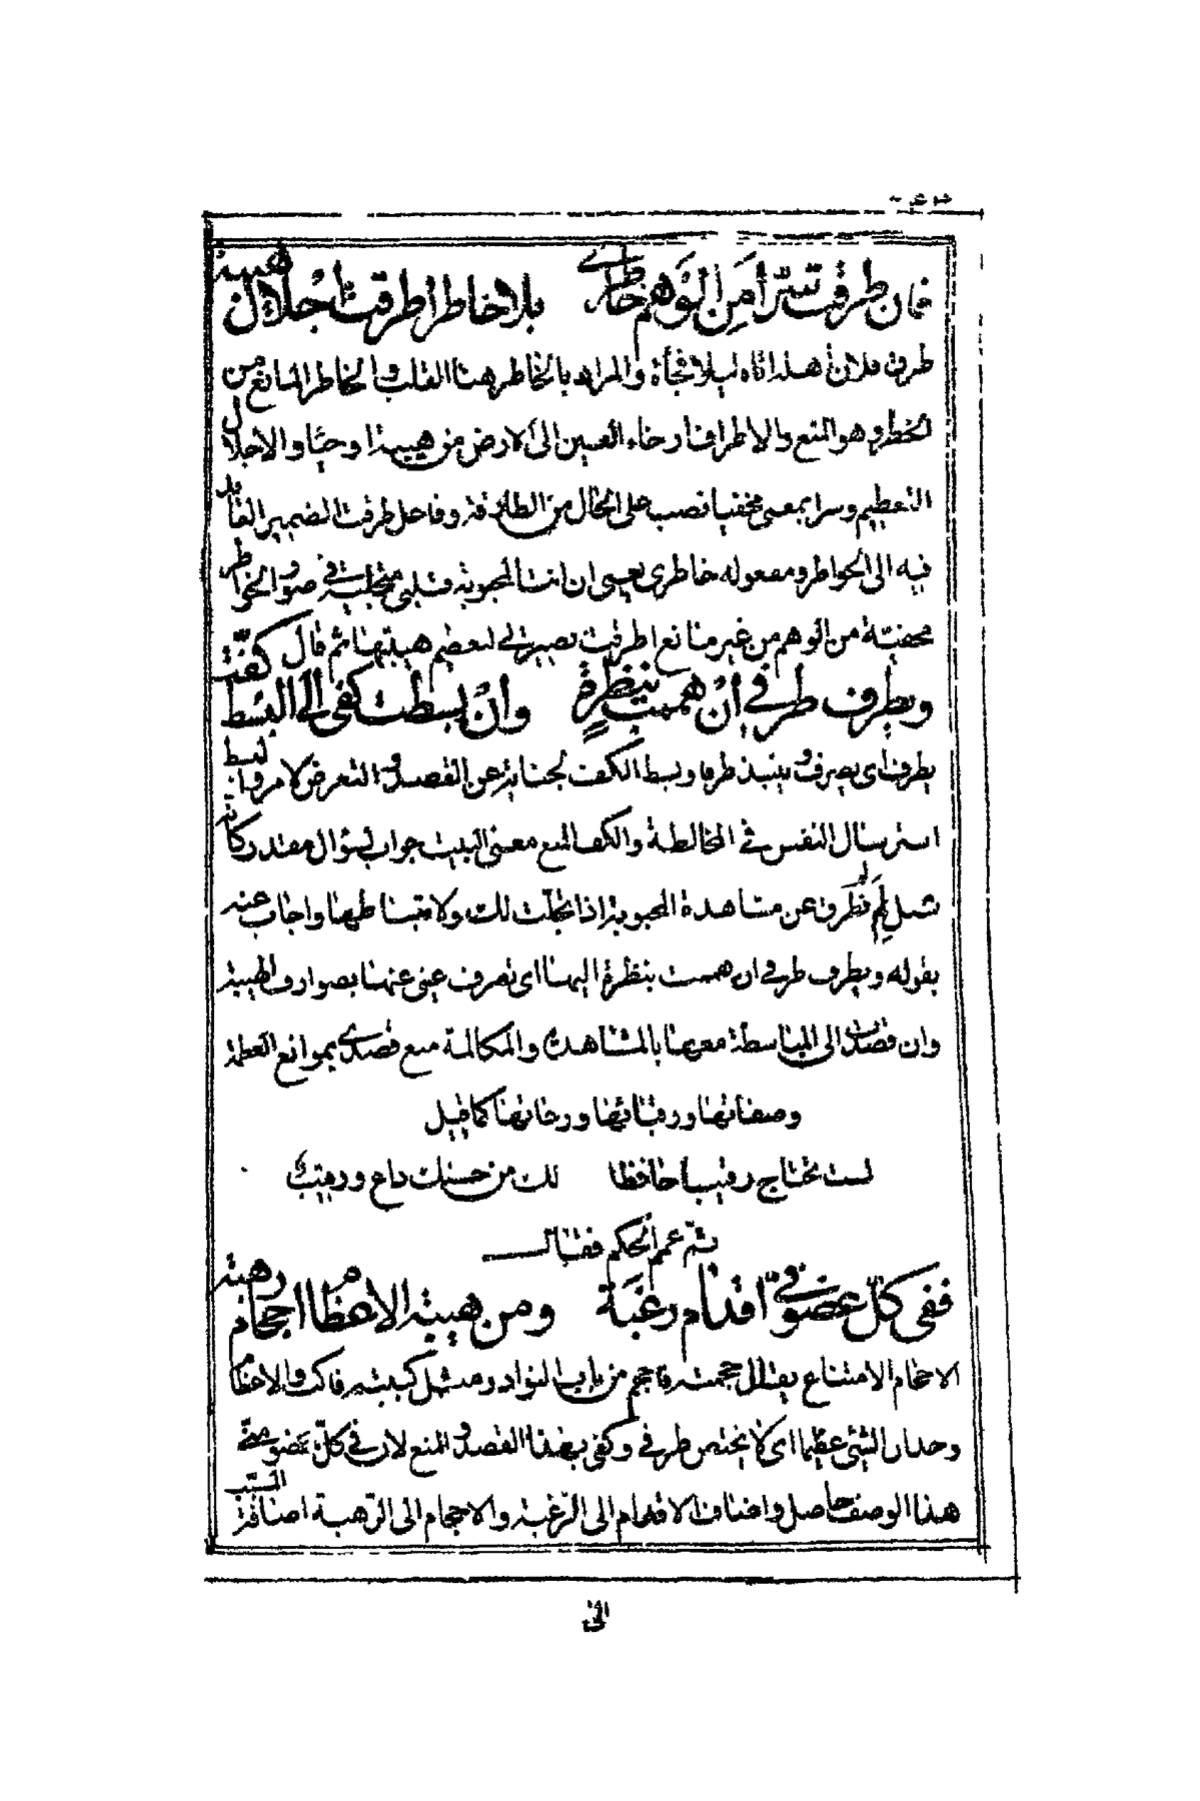 فان طرقت سرا من الوهم خاطري بلا خاطر اطرقت اجلال هيبة
طرق فلان اهله اتاه ليلا فجأة والمراد بالخاطر هنا القلب والخاطر المانع من
الخطر وهو المنع والاطراف ارخاء العين الى الارض من هيبة او حياء والاجلال
التعظيم وسرا بمعنى مخفيا نصب على الحال من الطارقة وفاعل طرقت الضمير القابل
فيه الى الخواطر ومفعوله خاطري يعني ان اتت المحبوبة قلبي متجلية في صور الخواطر
مخفية من الوهم من غير مانع اطرقت بصيرتي لتعظيم هيبتها ثم قال
ويطرف طرفي ان هممت بنظرة وان بسطت كفي الى البسط كفت
يطرف اي يصرف وينبذ طرفا وبسط الكف كناية عن القصد والتعرض لامر والبسط
استرسال النفس في المخالطة والكف المنع معنى البيت جواب لسؤال مقدر كانه
سئل لم تطرق عن مشاهدة المحبوبة اذا تجلت لك ولا تباسطها واجاب عنه
بقوله ويطرف طرفي ان هممت بنظرة اليها اي تصرف عيني عنها بصوارف الهيبة
وان قصدت الى المباسطة معها بالمشاهدة والمكالمة منع قصدي بموانع العظمة
وصفاتها ورقبائها و كما قيل
لست تحتاج رقيبا حافظا لك من حسنك داع ورقيب
ثم عمم الحكم فقال
ففي كل عضو في اقدام رغبة ومن هيبة الاعظام احجام رهبة
الاحجام الامتناع يقال حجمته فاحجم من باب النوادر ومثل كببته فاكب والاعظام
وجدان الشئ عظيما اي لا يختص طرفي وكفي بهذا القصد والمنع لان في كل عضو مني
هذا الوصف حاصل واضاف الاقدام الى الرغبة والاحجام الى الرهبة اضافة المسبب
الى